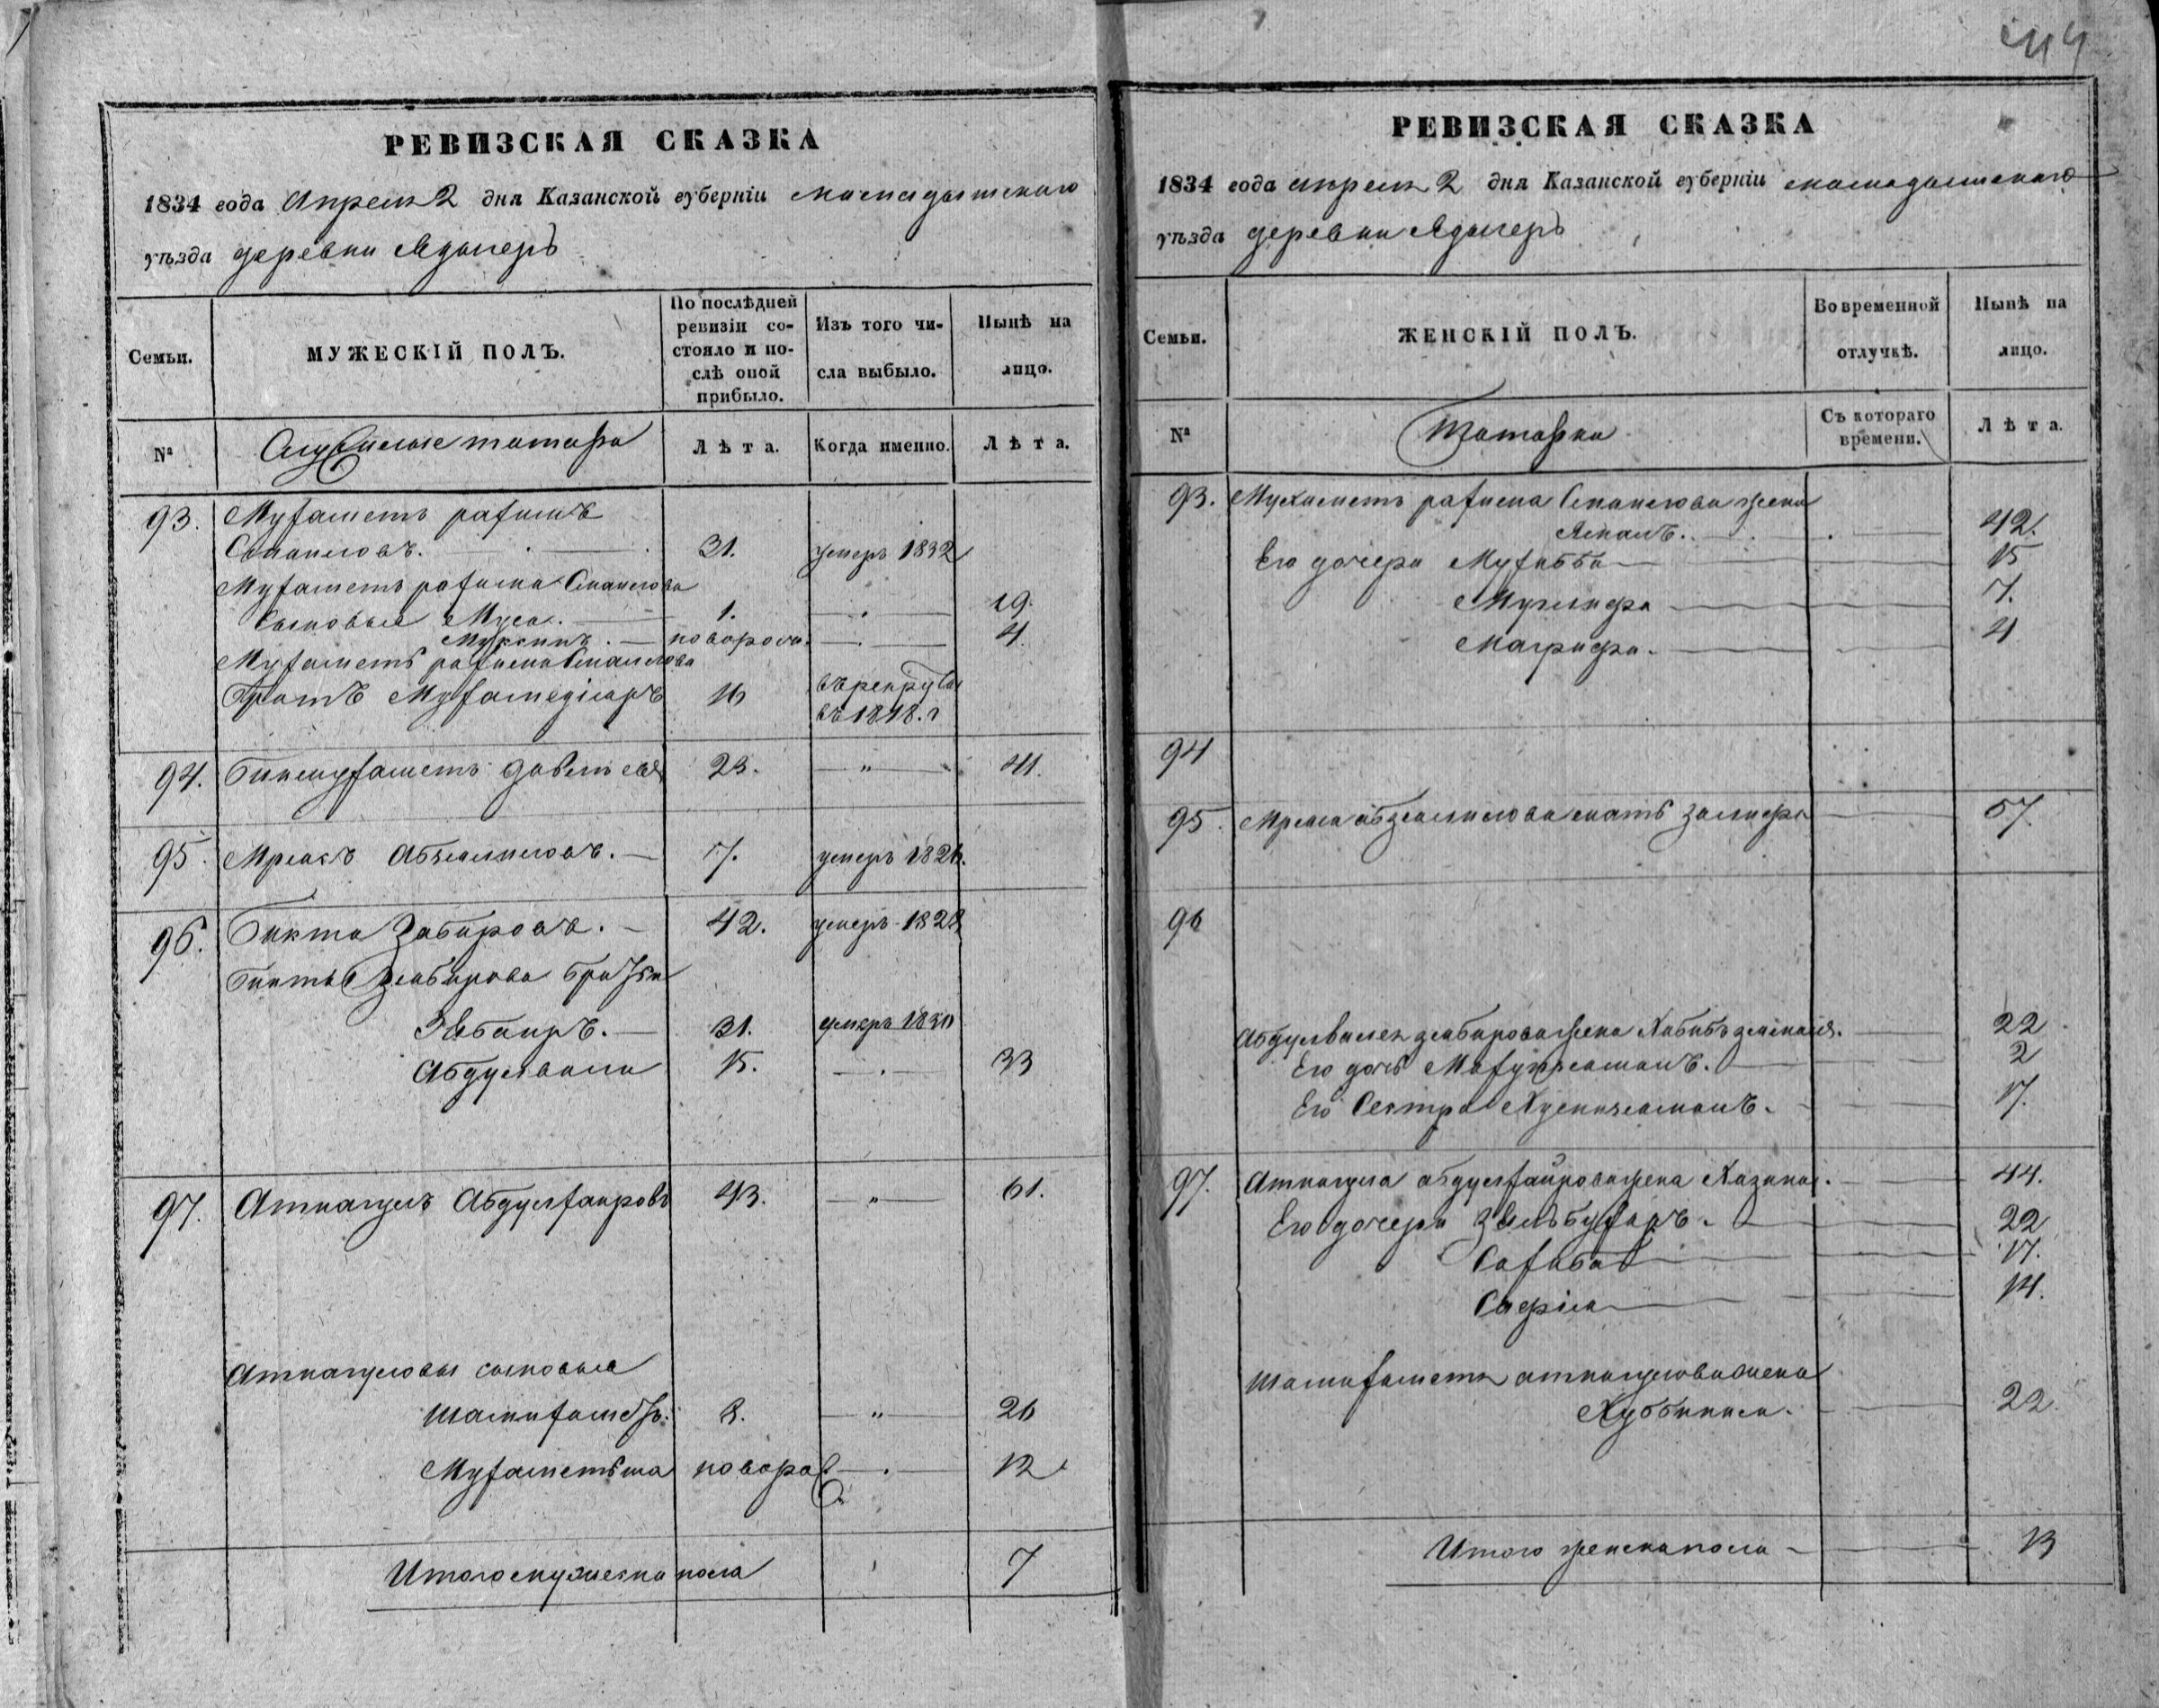 РЕВИЗСКАЯ СКАЗКА
1834 года Апреля 2 дня Казанской губерніи мамадышскаго
уѣзда деревни Ядыгеръ
Семьи.
МУЖЕСКІЙ ПОЛЪ.
По послѣдней
ревизіи со-
стояло и по-
слѣ оной
прибыло.
Изъ того чи-
сла выбыло.
Нынѣ на
лицо.
№
Служилые татара
Лѣта.
Когда именно.
Лѣта.
93. Мухаметъ рахимъ
Смаиловъ. 31. умеръ 1832
Мухаметъ рахима Смаилова
Сыновья Муса. 1. 19.
Муксинъ. новорож. 4.
Мухаметъ рахима Смаилова
братъ Мухамедіяръ 16 въ рекруты
въ 1818. г
94. Бикмухаметъ давлетевъ 23. " 41.
95. 7. умеръ 1826.
96. Бикта Забировъ. 42. умеръ 1828
Бикты Забирова братья
Забаиръ. 31. умеръ 1830
Абдулвали 15. 33
97. Аткагулъ Абдулхаировъ 43. " 61.
Аткагуловы сыновья
Шамихаметъ. 8. " 26
Мухаметьша новорож 12
Итого мужеска пола 7
РЕВИЗСКАЯ СКАЗКА
1834 года апреля 2 дня Казанской губерніи мамадышскаго
уѣзда деревни Ядыгеръ
Семьи.
ЖЕНСКІЙ ПОЛЪ.
Во временной
отлучкѣ.
Нынѣ на
лицо.
№
Татарки
Съ котораго
времени.
Лѣта.
93. Мухаметъ рахима Смаилова жена
42.
Его дочери Мухибба 15
7.
Магрифа. 4
94
95. мать Залифа 57.
96
Абдулвалея забирова жена 22
Его дочь 2
Его Сестра 17.
97. Аткагула абдулхаирова жена 44.
Его дочери Зюльбухаръ. 22
Сахиба 17.
Сафія 14.
Шамихаметя аткагулова жена
22.
Итого женска пола 13